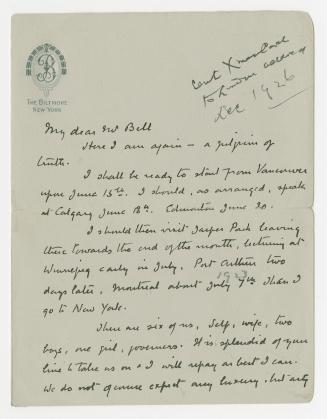 B
THE BILTMORE
NEW YORK
Sent Xmas Card
to London address
Dec 1926
My dear Mr Bell
Here I am again – a pilgrim of
truth.
I shall be ready to start from Vancouver
upon June 15th. I should, as arranged, speak
at Calgary June 18th. Edmonton June 20.
I should then visit Jasper Park leaving
there towards the end of the month, lecturing at
Winnipeg early in July, Port Arthur two
days later, Montreal about July 9th. Then I
1923
go to New York.
There are six of us, Self, wife, two
boys, one girl, governess. It is splendid of your
line to take us on & I will repay as best I can.
We do not of course expect any luxury, but